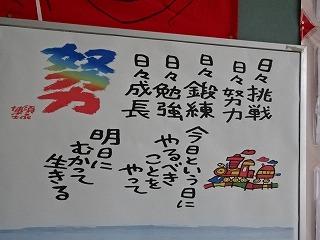 日々挑戦
日々努力
日々鍛練
日々勉強
日々成長
努力
今日という日に
やるべき
ことを
やって
明日に
むかって
生きる